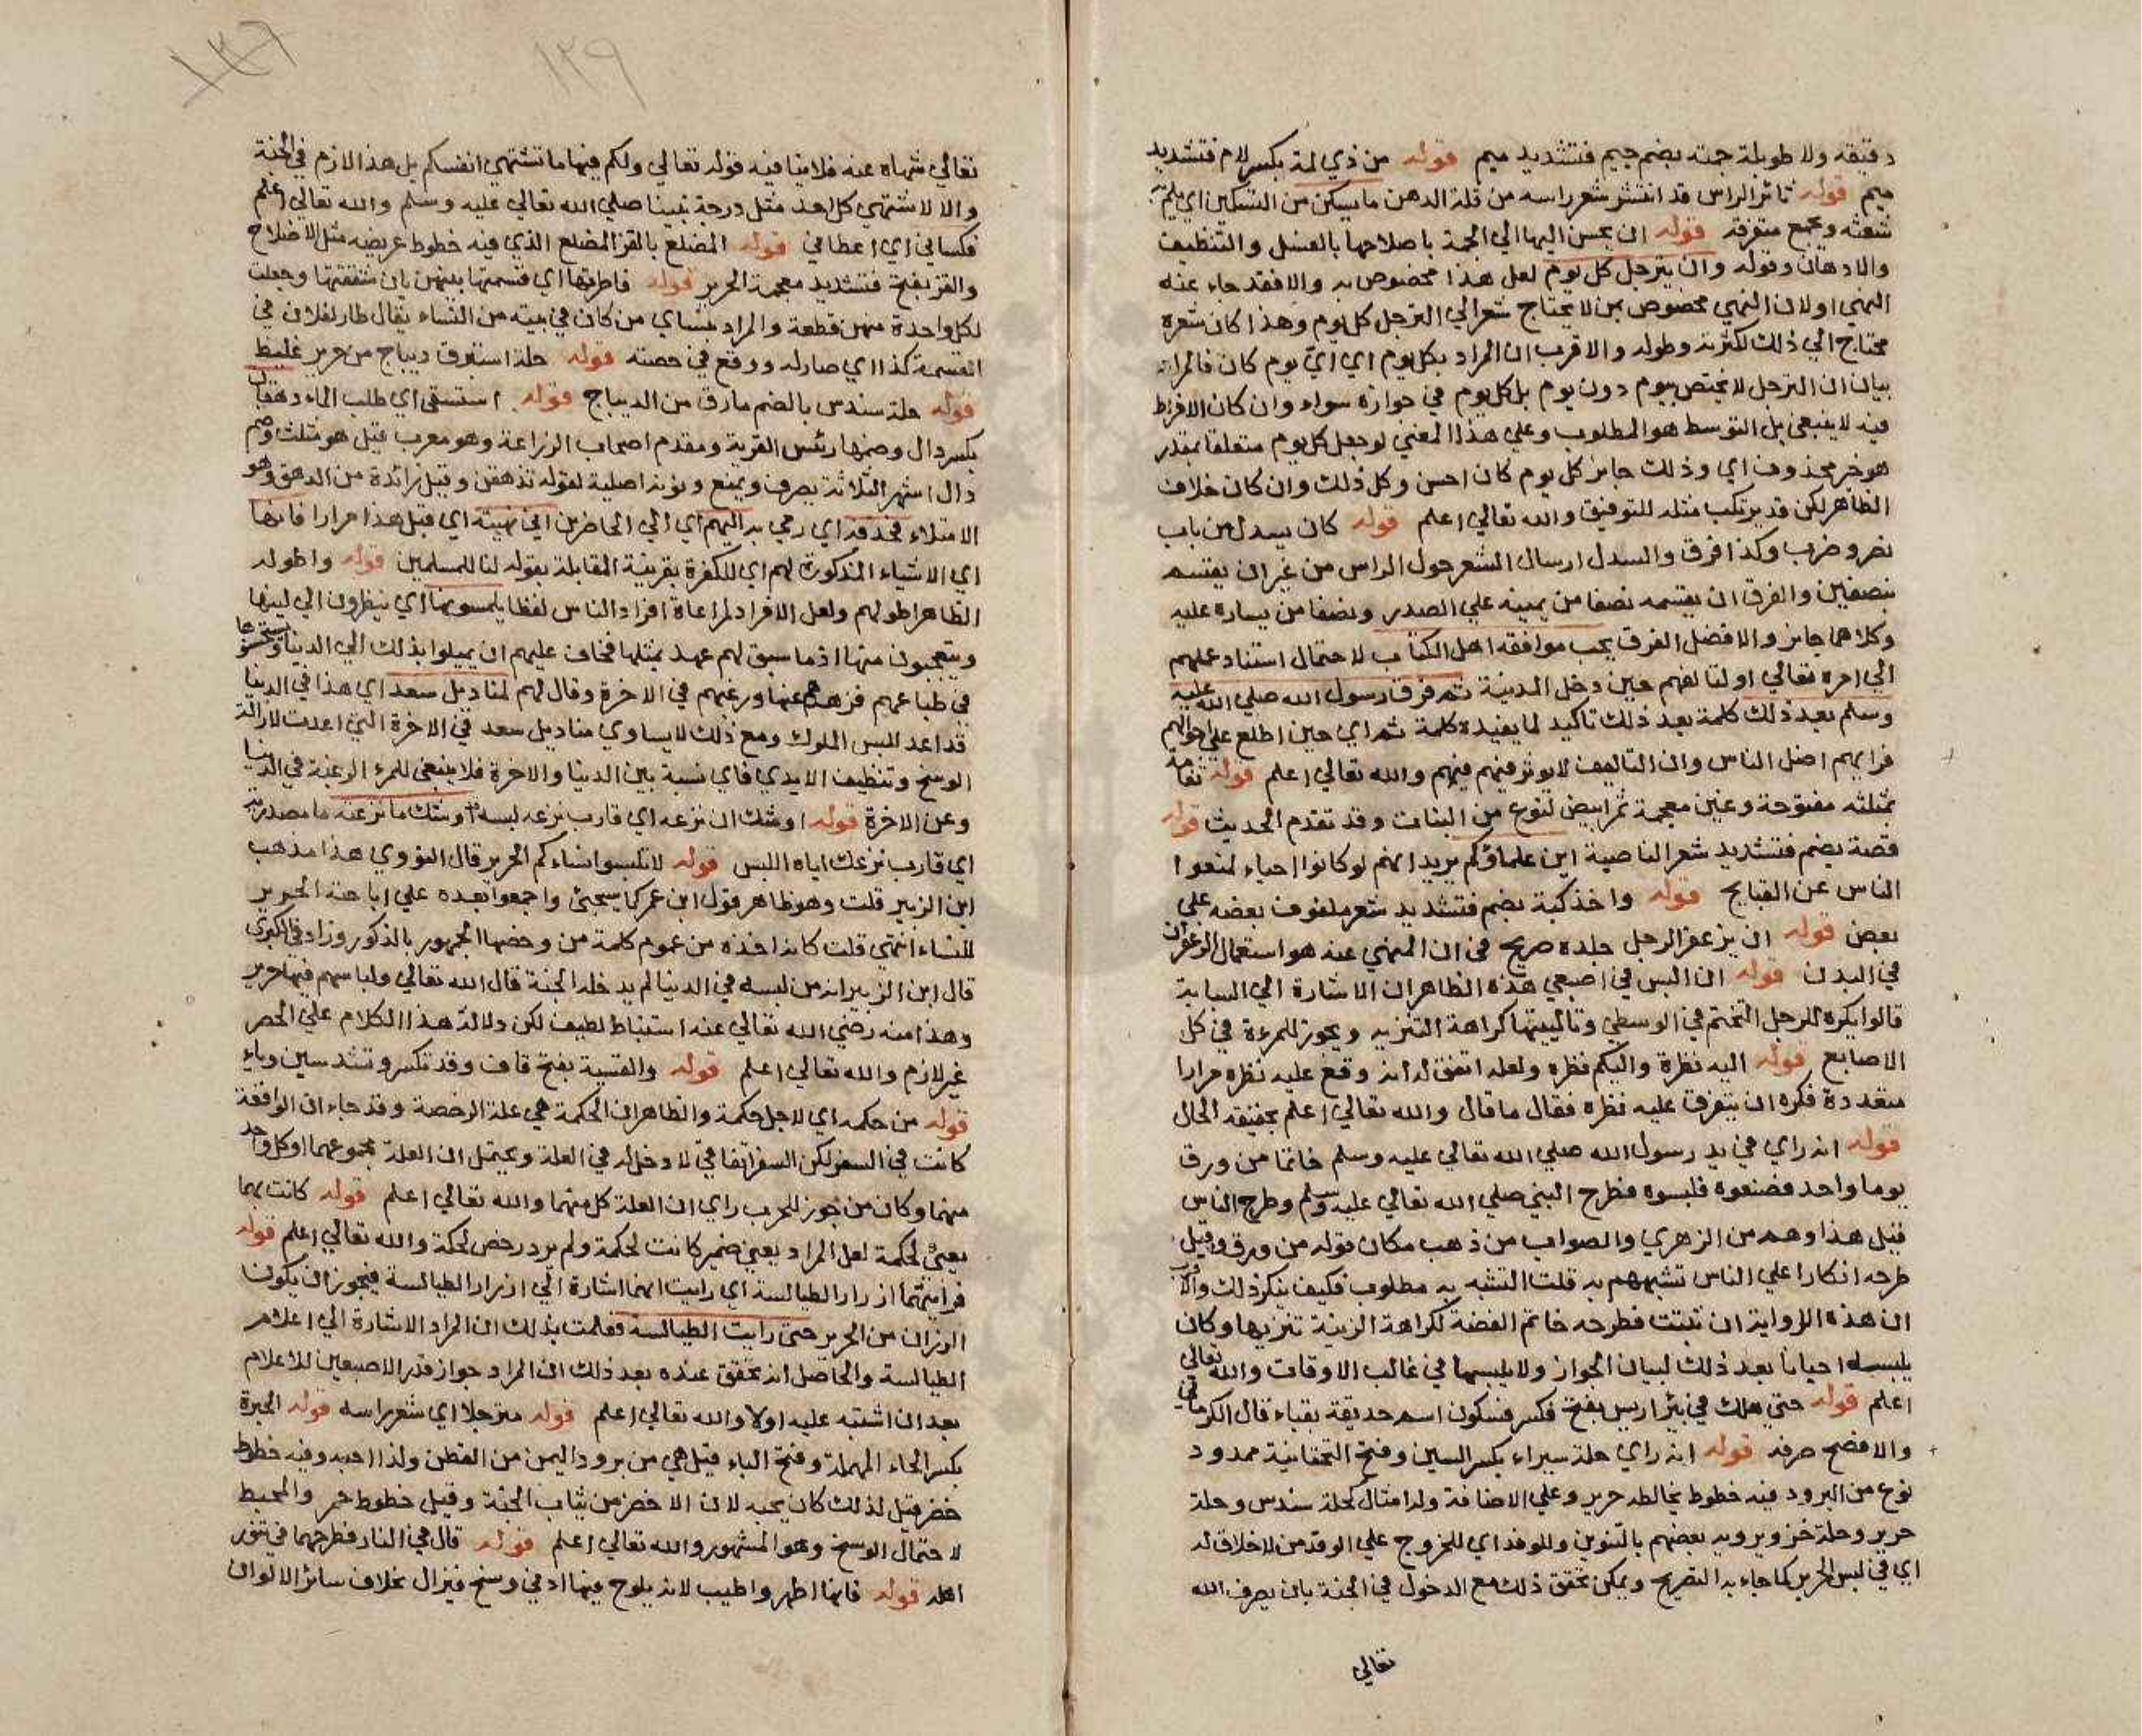 دقيقه ولا طويلة جمته بضم جيم فتشديد ميم قوله من ذي لمة بكسر لام فتشديد
ميم قوله ثائر الراس قد انتشر شعر راسه من قلة الدهن ما يسكن من التسكين اي يلم به
شعثه ويجمع متفرقه قوله ان يحسن اليها الي الجمة باصلاحها بالغسل والتنظيف
والادهان وقوله وان يترجل كل يوم لعل هذا مخصوص به والا فقد جاء عنه
النهي اولان النهي مخصوص بمن لا يحتاج شعر الي الترجل كل يوم وهذا كان شعره
محتاج الي ذلك لكثرته وطوله والاقرب ان المراد بكل يوم اي اي يوم كان فالمراد
بيان ان الترجل لا يختص بيوم دون يوم بل كل يوم في جوازه سواء وان كان الافراط
فيه لا ينبغي بل التوسط هو المطلوب وعلي هذا المعني لو جعل كل يوم متعلقا بمقدر
هو خبر محذوف اي وذلك جايز كل يوم كان احسن وكل ذلك وان كان خلاف
الظاهر لكن قد يرتكب مثله للتوفيق والله تعالي اعلم قوله كان يسدل من باب
نصر وضرب وكذا فرق والسدل ارسال الشعر حول الراس من غير ان يقتسم
بنصفين والفرق ان يقسمه نصفا من يمينه علي الصدر ونصفا من يساره عليه
وكلاهما جايز والافضل الفرق يحب موافقة اهل الكتاب لاحتمال استناد عملهم
الي امره تعالي او لتالفهم حين دخل المدينة ثم فرق رسول الله صلي الله عليه
وسلم بعد ذلك كلمة بعد ذلك تاكيد لما يفيده كلمة ثم اي حين اطلع علي احوالهم
فراهم اضل الناس وان التاليف لا يوثر فيهم والله تعالي اعلم قوله ثغامة
بمثلثه مفتوحة وغين معجمة ثمر ابيض لنوع من النبات وقد تقدم الحديث قوله
قصة بضم فتشديد شعر الناصية اين علماوكم يريد انهم لو كانوا احياء لمنعوا
الناس عن القبايح قوله واخذ كبة بضم فتشديد شعر ملفوف بعضه علي
بعض قوله ان يزعفر الرجل جلده صريح في ان المنهي عنه هو استعمال الزعفران
في البدن قوله ان البس في اصبعي هذه الظاهر ان الاشارة الي السبابة
قالوا يكره للرجل التختم في الوسطي وتاليتها كراهة التنزيه ويجوز للمرءة في كل
الاصابع قوله اليه نظرة واليكم نظره ولعله اتفق له انه وقع عليه نظره مرارا
متعددة فكره ان يتفرق عليه نظره فقال ما قال والله تعالي اعلم بحقيقة الحال
قوله انه راي في يد رسول الله صلي الله تعالي عليه وسلم خاتما من ورق
يوما واحد فصنعوه فلبسوه فطرح النبي صلي الله تعالي عليه وسلم وطرح الناس
قيل هذا وهم من الزهري والصواب من ذهب مكان قوله من ورق وقيل
طرحه انكارا علي الناس تشبههم به قلت التشبه به مطلوب فكيف ينكر ذلك والاقرب
ان هذه الرواية ان ثبتت فطرحه خاتم الفضة لكراهة الزينة تنزيها وكان
يلبسه احيانا بعد ذلك لبيان الجواز ولا يلبسها في غالب الاوقات والله تعالي
اعلم قوله حتي هلك في بئر اريس بفتح فكسر فسكون اسم حديقة بقباء قال الكرماني
والافصح صرفه قوله انه راي حلة سيراء بكسر السين وفتح التحتانية ممدود
نوع من البرود فيه خطوط يخالطه حرير وعلي الاضافة وله امثال كحلة سندس وحلة
حرير وحلة خز ويرويه بعضهم بالتنوين وللوفد اي للخروج علي الوفد من لا خلاق له
اي في لبس الحرير كما جاء به التصريح ويمكن تحقق ذلك مع الدخول في الجنة بان يصرف الله
تعالي
١٢٩
١٣٦
تعالي شهاه عنه فلا ينافيه قوله تعالي ولكم فيها ما تشتهي انفسكم بل هذا لازم في الجنة
والا لاشتهي كل احد مثل درجة نبينا صلي الله تعالي عليه وسلم والله تعالي اعلم
فكساني اي اعطاني قوله المضلع بالقز المضلع الذي فيه خطوط عريضه مثل الاضلاع
والقز بفتح فتشديد معجمة الحرير قوله فاطرتها اي قسمتها بينهن بان شققتها وجعلت
لكل واحدة منهن قطعة والمراد بنساي من كان في بيته من النساء يقال طار لفلان في
القسمة كذا اي صار له ووقع في حصته قوله حلة استبرق ديباج من حرير غليظ
قوله حلة سندس بالضم مارق من الديباج قوله استسقي اي طلب الماء دهقان
بكسر دال وضمها رئيس القرية ومقدم اصحاب الزراعة وهو معرب قيل هو مثلث وضم
دال اشهر الثلاثة يصرف ويمنع ونونه اصلية لقوله تدهقن وقيل زائدة من الدهق وهو
الامتلاء فحذفه اي رمي به اليهم اي الي الحاضرين اني نهيته اي قبل هذا مرارا فانها
اي الاشياء المذكورة لهم اي للكفرة بقرينة المقابلة بقوله لنا للمسلمين قوله واطوله
الظاهر اطولهم ولعل الافراد لمراعاة افراد الناس لفظا يلمسونها اي ينظرون الي لينها
ويتعجبون منها اذ ما سبق لهم عهد بمثلها فخاف عليهم ان يميلوا بذلك الي الدنيا ويستحسنوها
في طباعهم فزهدهم عنها ورغبهم في الاخرة وقال لهم لمناديل سعد اي هذا في الدنيا
قد اعد للبس الملوك ومع ذلك لا يساوي مناديل سعد في الاخرة التي اعدت لازالة
الوسخ وتنظيف الايدي فاي نسبة بين الدنيا والاخرة فلا ينبغي للمرء الرغبة في الدنيا
وعن الاخرة قوله اوشك ان نزعه اي قارب نزعه لبسه اوشك ما نزعته ما مصدرية
اي قارب نزعك اياه اللبس قوله لا تلبسوا نساءكم الحرير قال النووي هذا مذهب
ابن الزبير قلت وهو ظاهر قول ابن عمر كما سيجئ واجمعوا بعده علي اباحة الحرير
للنساء انتهي قلت كانه اخذه من عموم كلمة من وخصها الجمهور بالذكور وزاد في الكبري
قال ابن الزبير انه من لبسه في الدنيا لم يدخل الجنة قال الله تعالي ولباسهم فيها حرير
وهذا منه رضي الله تعالي عنه استنباط لطيف لكن دلالة هذا الكلام علي الحصر
غير لازم والله تعالي اعلم قوله والقسية بفتح قاف وقد تكسر وتشد سين وياء
قوله من حكمه اي لاجل حكمة والظاهر ان الحكمة هي علة الرخصة وقد جاء ان الواقعة
كانت في السفر لكن السفر اتفاقي لا دخل له في العلة ويحتمل ان العلة مجموعهما او كل واحد
منهما وكان من جوز للحرب راي ان العلة كل منهما والله تعالي اعلم قوله كانت بهما
يعني لحكمة لعل المراد يعين ضمير كانت لحكمة ولم يرد رخص لحكة والله تعالي اعلم قوله
فرايتهما ازرار الطيالسة اي رايت انهما اشارة الي ازرار الطيالسة فيجوز ان يكون
الزران من الحرير حتي رايت الطيالسة فعلمت بذلك ان المراد الاشارة الي اعلام
الطيالسة والحاصل انه تحقق عنده بعد ذلك ان المراد جواز قدر الاصبعين للاعلام
بعد ان اشتبه عليه اولا والله تعالي اعلم قوله مترجلا اي شعر راسه قوله الحبرة
بكسر الحاء المهملة وفتح الباء قيل هي من برود اليمن من القطن ولذا احبه وفيه خطوط
خضر قيل لذلك كان يحبه لان الاخضر من ثياب الجنة وقيل خطوط حمر والمحيط
لاحتمال الوسخ وهو المشهور والله تعالي اعلم قوله قال في النار فطرحهما في تنور
اهله قوله فانها اطهر واطيب لانه يلوح فيها ادني وسخ فيزال بخلاف سائر الالوان